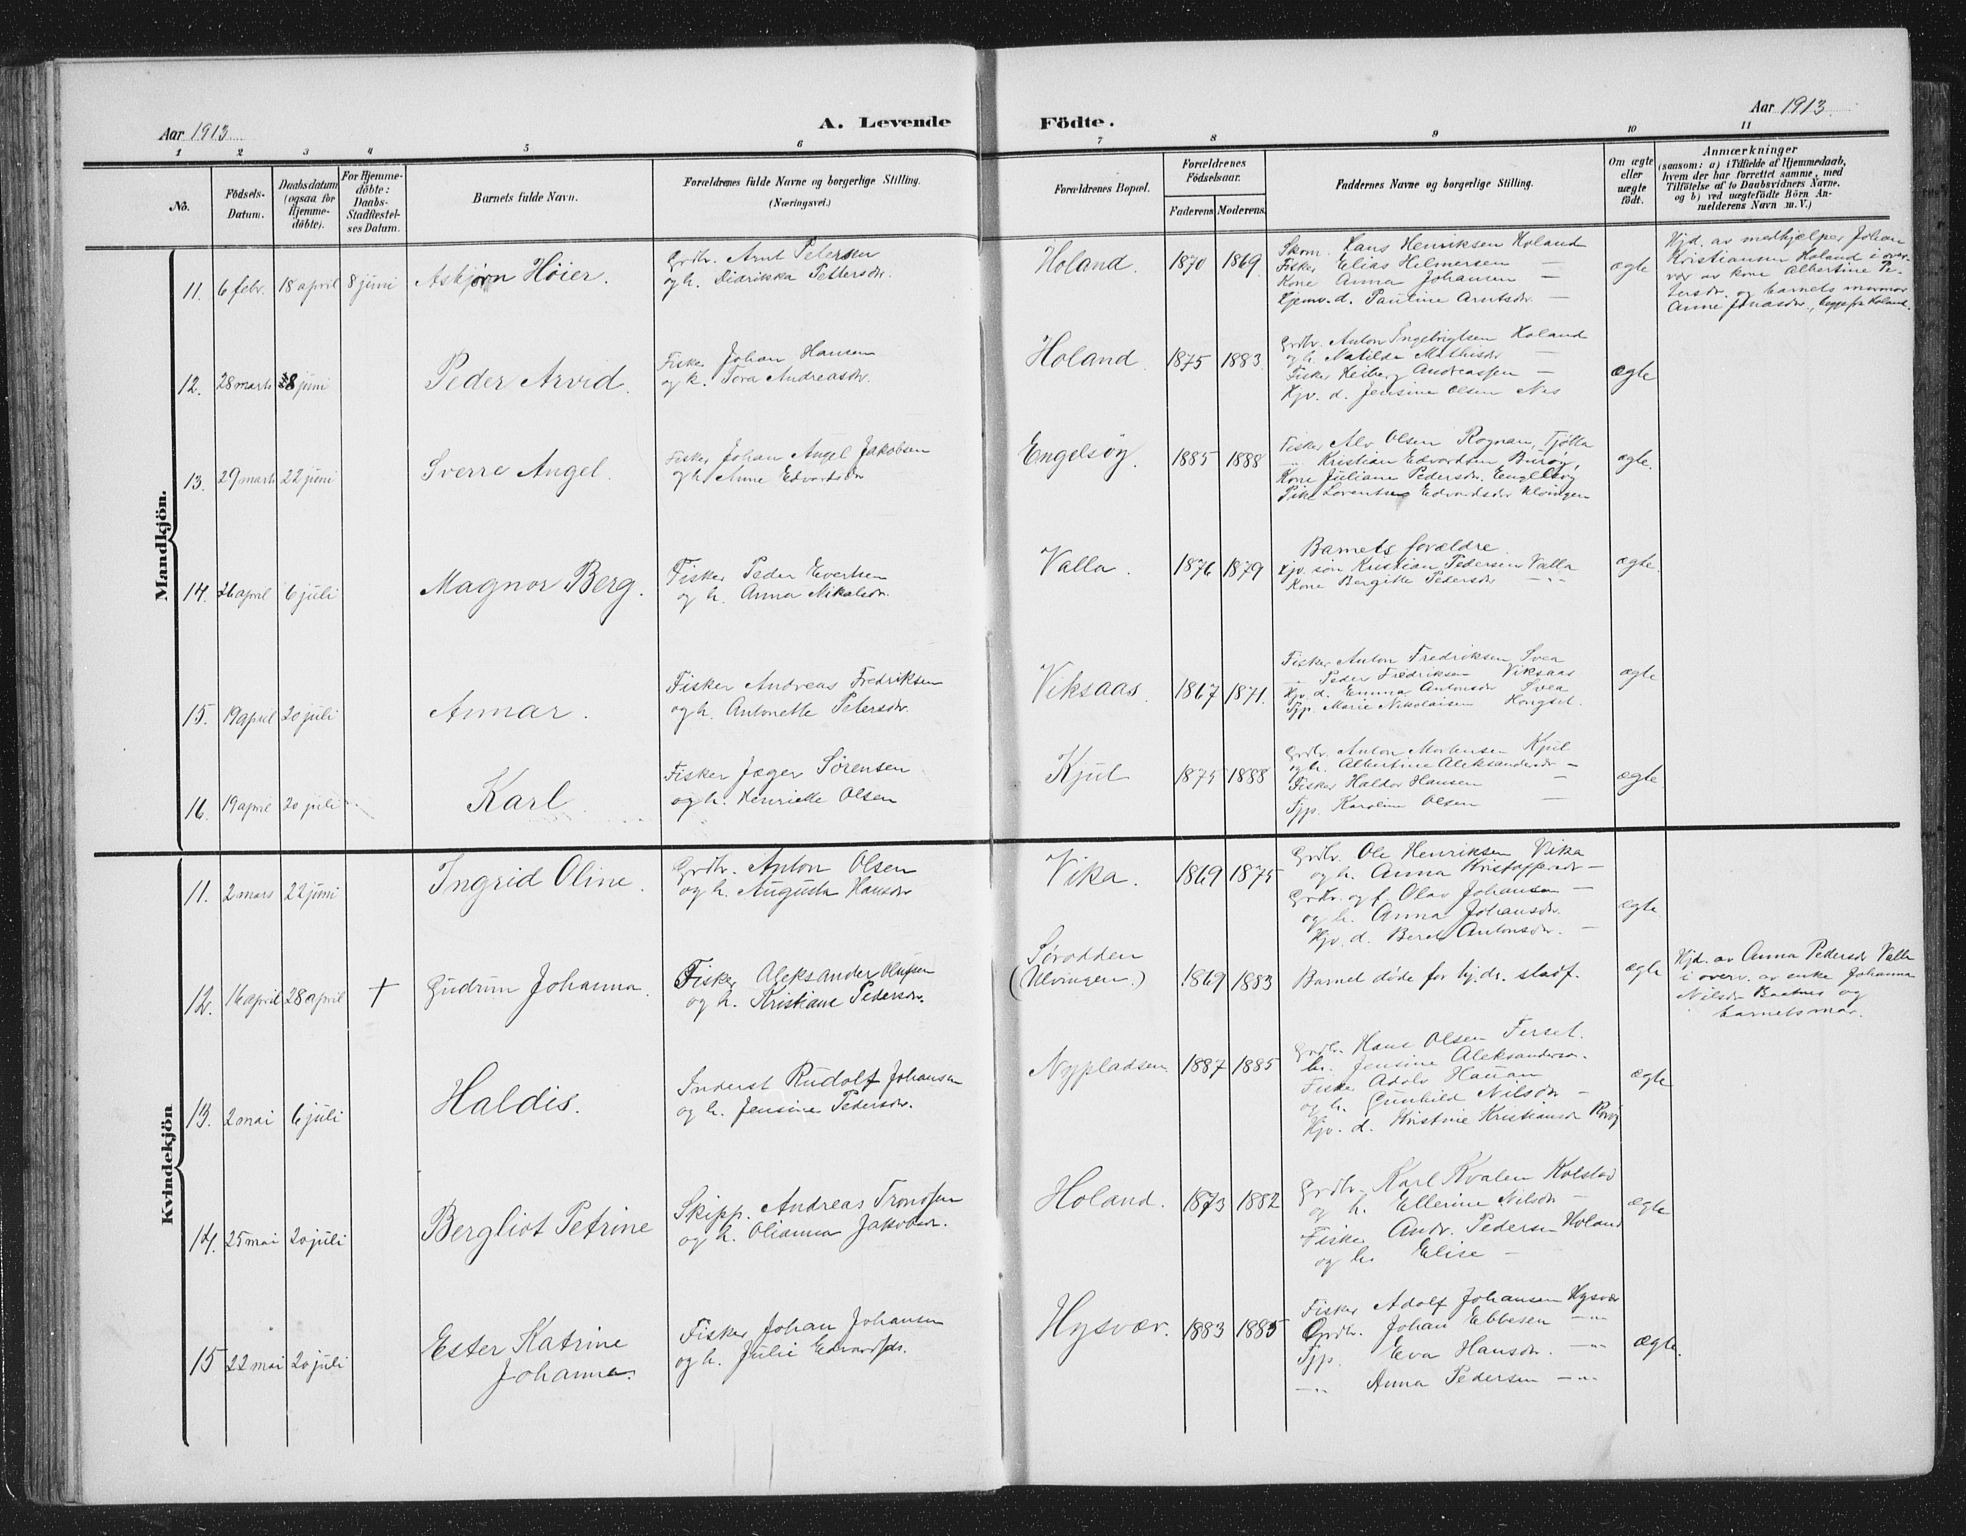 Aar 1913
A. Levende Födte.
Aar 1913.
1 2 3 4 5 6 7 8 9 10 11
No.
Födsels-
Datum.
Daabsdatum
(ogsaa for
Hjemme-
döbte).
For Hjemme-
döbte:
Daabs-
Stadfæstel-
ses Datum.
Barnets fulde Navn.
Forældrenes fulde Navne og borgerlige Stilling.
(Næringsvei.)
Forældrenes Bopæl.
Forældrenes
Födselsaar.
Faderens Moderens.
Faddernes Navne og borgerlige Stilling.
Om ægte
eller
uægte
født.
Anmærkninger
(saasom: a) i Tilfælde af Hjemmedaab,
hvem der har forrettet samme, med
Tilföielse af to Daabsvidners Navne.
og b) ved uægtefödte Börn An-
melderens Navn m. V.)
Mandkjön.
11. 6 febr. 18 april 8 juni Asbjørn Höier.
Grdbr. Arnt Petersen
og h. Didrikka Pettersdr.
Holand. 1870 1869
Skom. Hans Henriksen Holand
Fisker Elias Helmersen —
Kone Anna Johansen —
Hjemv. d. Pauline Arntsdr. —
ægte
Hjd. av medhjælper Johan
Kristiansen Holand i over-
vær av kone Albertine Pe-
tersdr. og barnets mormor
Anne Jonasdr., begge fra Holand.
12. 28 marts 8 juni Peder Arvid.
Fisker Johan Hansen
og h. Tora Andreasdr.
Holand. 1875 1883.
Grdbr. Anton Ingebrigtsen Holand
og h. Matilde Mathisdr —
Fisker Heiberg Andreassen —
Hjv. d. Jensine Olsen Nes
ægte
13. 29 marts 22 juni Sverre Angel.
Fisker Johan Angel Jakobsen
og h. Anne Edvardsdr
Engelsöy. 1885 1888
Fisker Alv Olsen Rognan, Tjötta
—"— Kristian Edvardsen Buröy,
Kone Juliane Pedersdr. Engelsöy
Pike Lorentse Edvardsdr Ulvingen
ægte.
14. 26 april 6 juli Magnor Berg.
Fisker Peder Evertsen
og h. Anna Nikolsdr.
Valla. 1876 1879
Barnets forældre.
Hjv. søn Kristian Pedersen Valla
Kone Bergitte Pedersdr —"—
ægte.
15. 19 april 20 juli Annar.
Fisker Andreas Fredriksen
og h. Antonette Petersdr.
Viksaas. 1867 1871.
Fisker Anton Fredriksen Svea
—"— Peder Fredriksen Viksaas
Hjv. d. Emma Antonsdr Svea
Tjp. Marie Nikolaisen Hongset.
ægte
16. 19 april 20 juli Karl
Fisker Jæger Sörensen
og h. Henriette Olsen
Kjul 1875 1888
Grdbr. Anton Mortensen Kjul
og h. Albertine Aleksandersdr —
Fisker Haldor Hansen —
Tjp. Karoline Olsen —
ægte
Kvindekjön
11. 2 mars 22 juni Ingrid Oline.
Grdbr. Anton Olsen
og h. Augusta Hansdr
Vika. 1869 1875
Grdbr. Ole Henriksen Vika
og h. Anna Kristoffersdr —
Grdbr. og f. Olav Johansen —
og h. Anna Johansdr. —
Hjv. d. Beret Antonsdr. —
ægte.
12. 16 april 28 april + Gudrun Johanna.
Fisker Aleksander Olufsen
og h. Kristiane Pedersdr.
Sörodden
(Ulvingen.) 1869 1883
Barnet döde för hj.d. stadf.
ægte
Hjd. av Anna Pedersdr Valla
i overv. av enke Johanna
Nilsdr Baatnes og
barnets mor.
13. 2 mai 6 juli Haldis.
Inderst Rudolf Johansen
og h. Jensine Pedersdr.
Nypladsen 1887 1885
Grdbr. Hans Olsen Forset.
h. Jensine Aleksandersdr.
Fisker Adolv Hauan
og h. Gunhild Nilsdr —
Hjv. d. Kristine Kristiansdr Roröy
ægte
14. 25 mai 20 juli Bergliot Petrine
Skipp. Andreas Tronssen
og h. Olianna Jakobsdr.
Holand. 1873 1882
Grdbr. Karl Kvalen Kolstad
og h. Ellerine Nilsdr —
Fisker Andr. Pedersen Holand
og h. Elise —
ægte
15 22 mai 20 juli Ester Katrine
Johanna.
Fisker Johan Johansen
og h. Julie Edvardsdr.
Hysvær. 1883 1885
Fisker Adolf Johansen Hysvær
Grdbr. Johan Ebbesen —"—
Tjp. Eva Hansdr. —"—
—"— Anna Pedersen —"—
ægte.